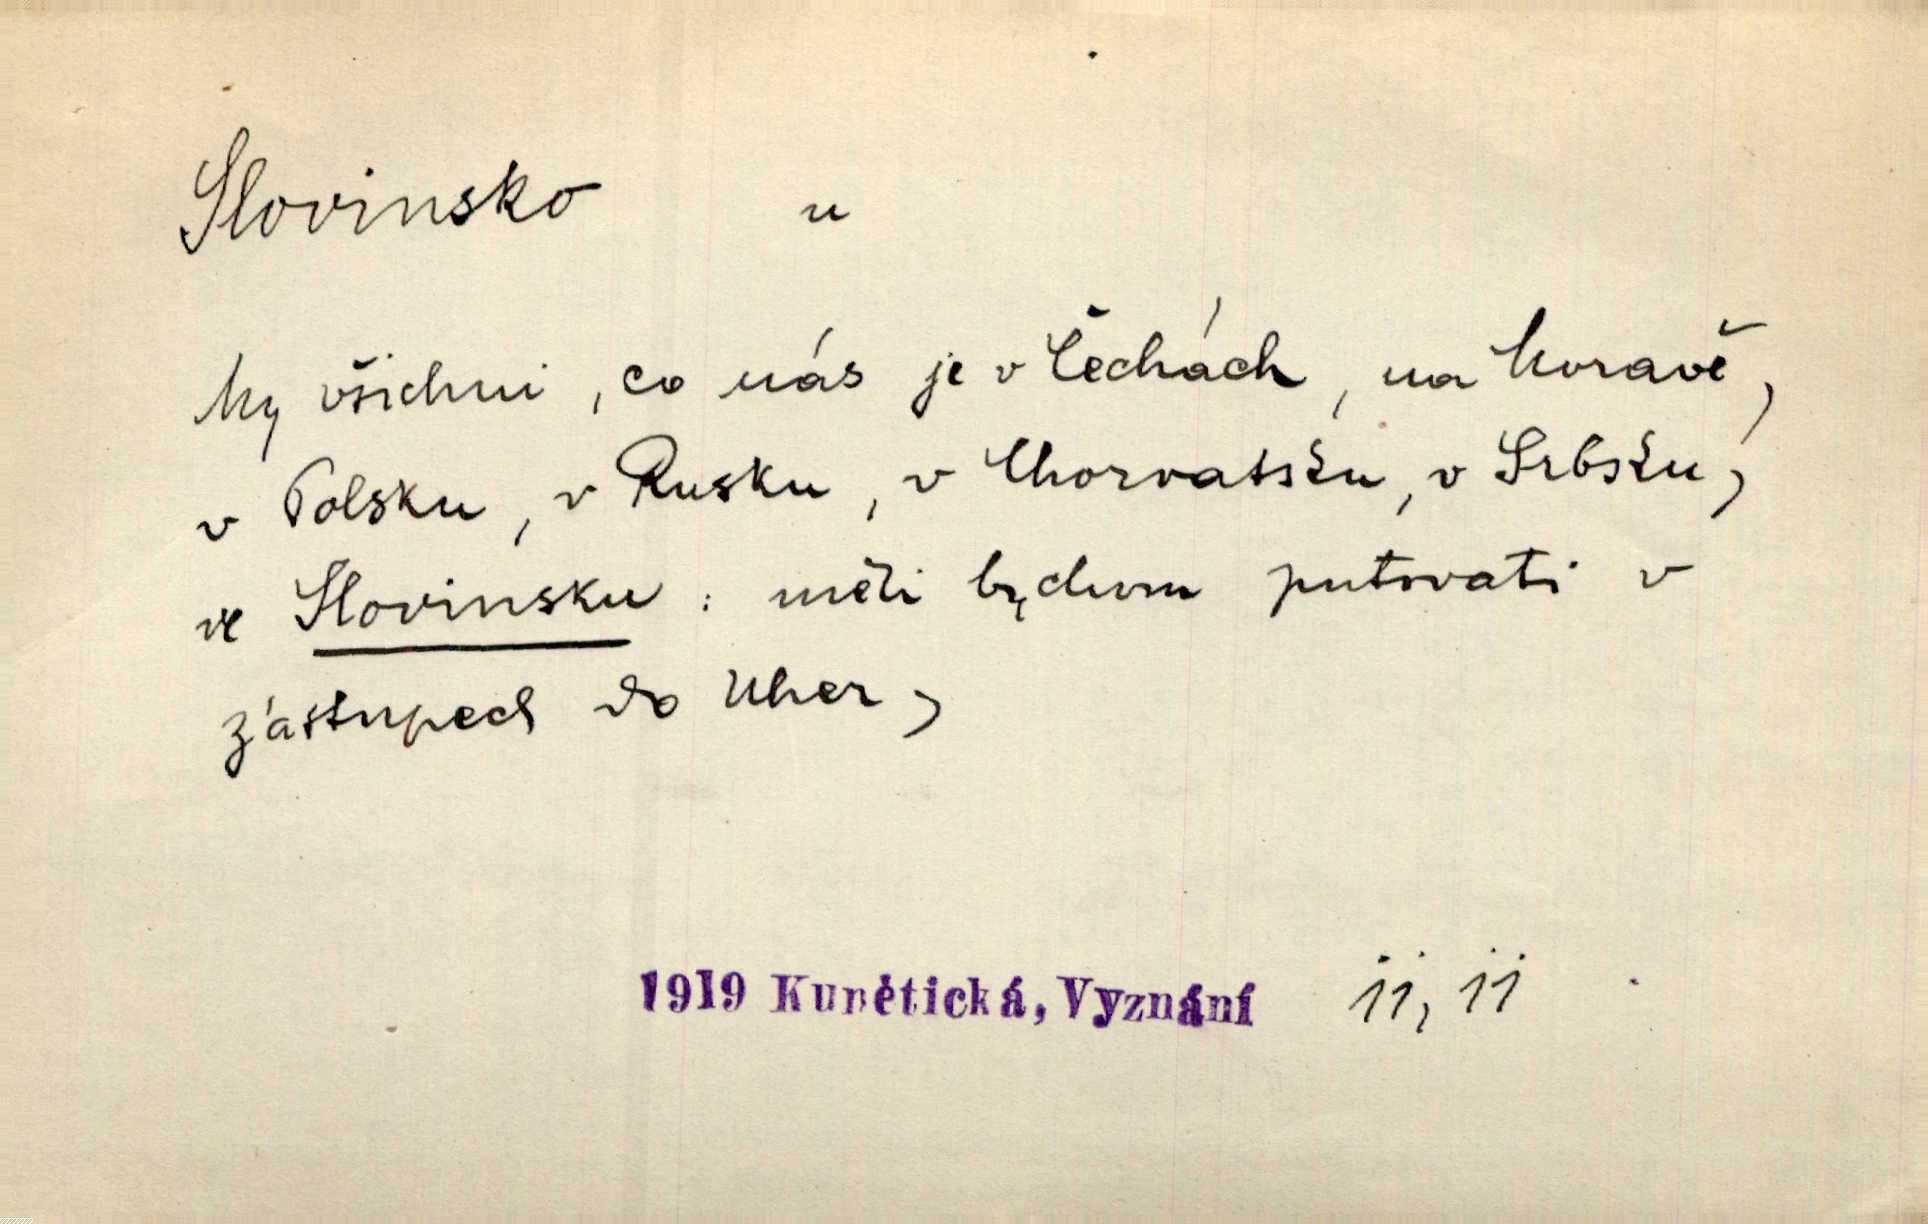 Slovinsko u
My všichni, co nás je v Čechách, na Moravě,
v Polsku, v Rusku, v Chorvatsku, v Srbsku,
ve Slovinsku: měli bychom putovati v
zástupech do Uher,
1919 Kunětická, Vyznání 11, 11